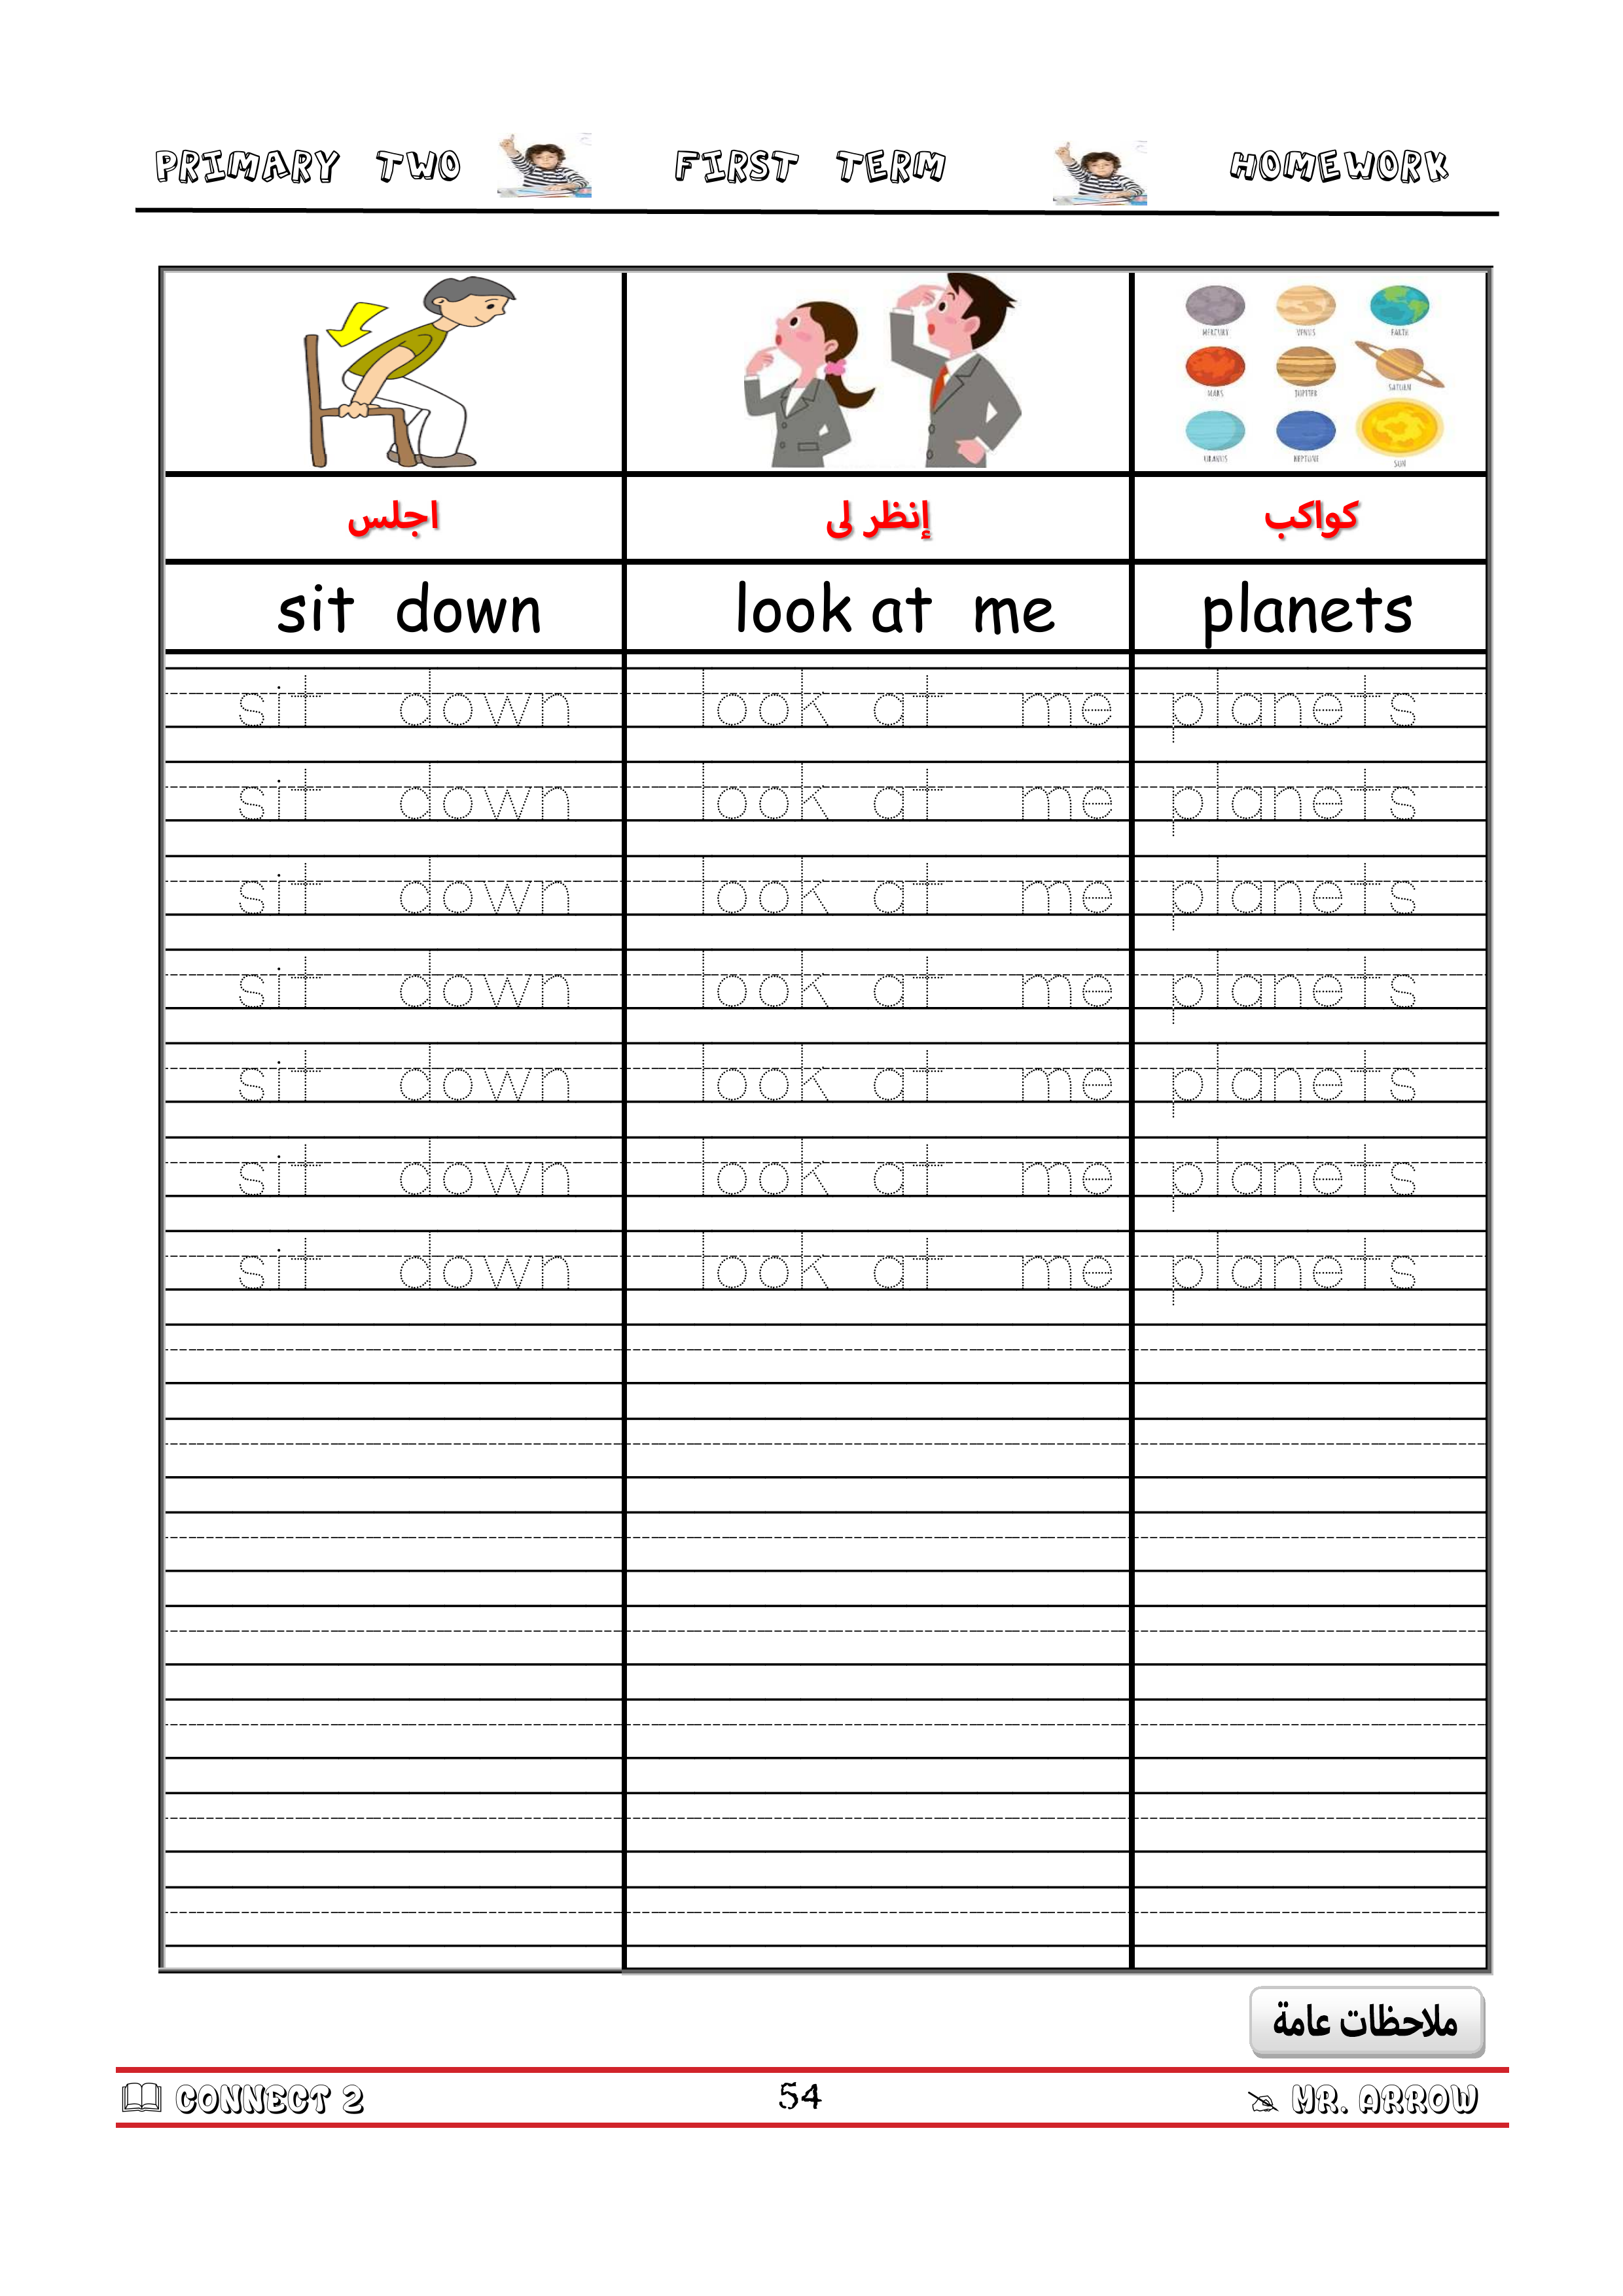 PRIMARY TWO FIRST TERM HOMEWORK
MERCURY VENUS EARTH
MARS JUPITER SATURN
URANUS NEPTUNE SUN
اجلس إنظر لى كواكب
sit down look at me planets
sit down look at me planets
sit down look at me planets
sit down look at me planets
sit down look at me planets
sit down look at me planets
sit down look at me planets
sit down look at me planets
ملاحظات عامة
CONNECT 2 54 MR. ARROW